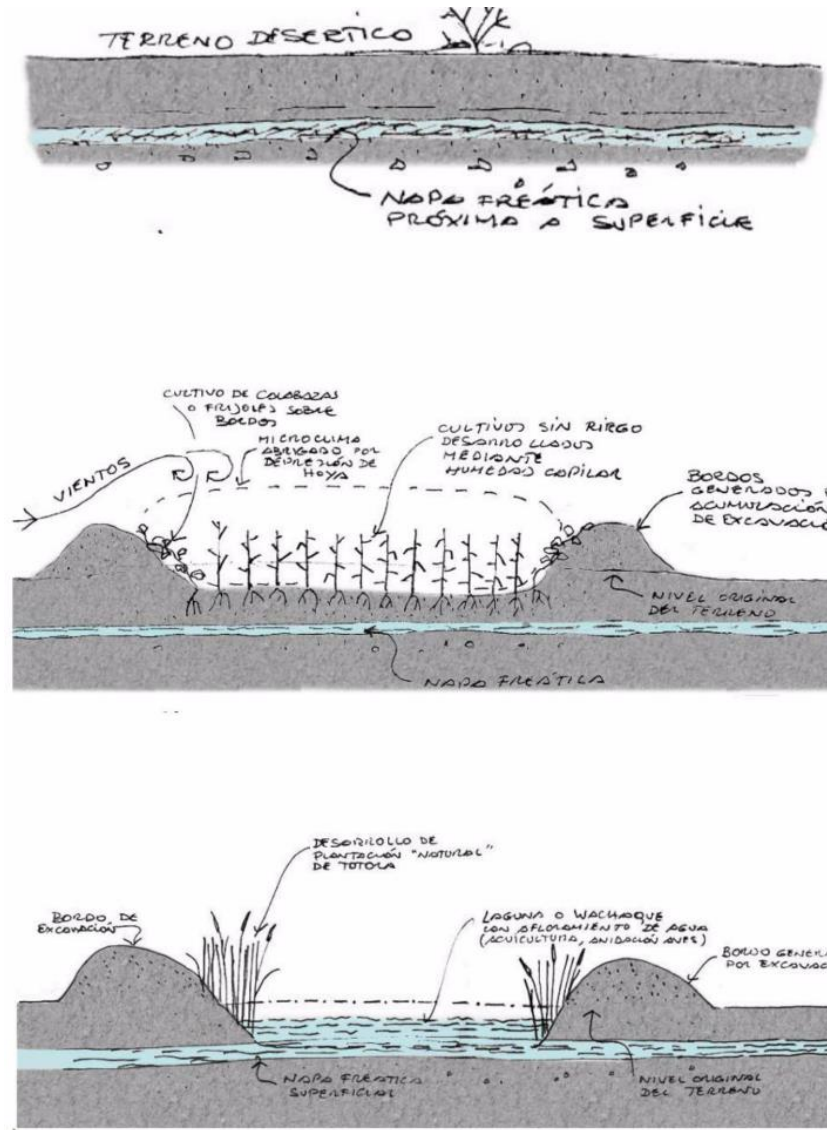 TERRENO DESERTICO
NAPA FREÁTICA
PRÓXIMA A SUPERFICIE
CULTIVO DE CALABAZAS
O FRIJOLES SOBRE
BORDOS
MICROCLIMA
ABRIGADO POR
DEPRESIÓN DE
HOYA
VIENTOS
CULTIVOS SIN RIEGO
DESARROLLADOS
MEDIANTE
HUMEDAD CAPILAR
BORDOS
GENERADOS
ACUMULACIÓN
DE EXCAVACIÓ
NIVEL ORIGINAL
DEL TERRENO
NAPA FREÁTICA
DESARROLLO DE
PLANTACIÓN "NATURAL"
DE TOTORA
BORDO DE
EXCAVACIÓN
LAGUNA O WACHAQUE
CON AFLORAMIENTO DE AGUA
(ACUICULTURA, ANIDACIÓN AVES)
BORDO GENER
POR EXCAVAC
NAPA FREÁTICA
SUPERFICIAL
NIVEL ORIGINAL
DEL TERRENO